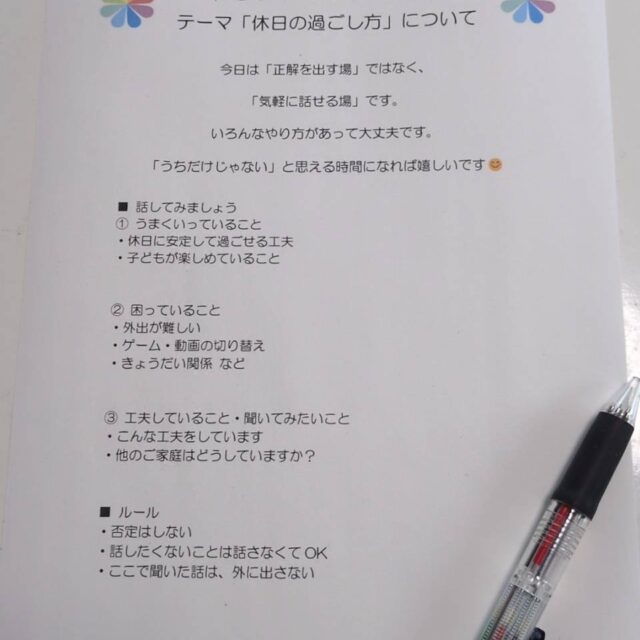 テーマ「休日の過ごし方」について
今日は「正解を出す場」ではなく、
「気軽に話せる場」です。
いろんなやり方があって大丈夫です。
「うちだけじゃない」と思える時間になれば嬉しいです😊
■ 話してみましょう
① うまくいっていること
・休日に安定して過ごせる工夫
・子どもが楽しめていること
② 困っていること
・外出が難しい
・ゲーム・動画の切り替え
・きょうだい関係 など
③ 工夫していること・聞いてみたいこと
・こんな工夫をしています
・他のご家庭はどうしていますか？
■ ルール
・否定はしない
・話したくないことは話さなくて OK
・ここで聞いた話は、外に出さない